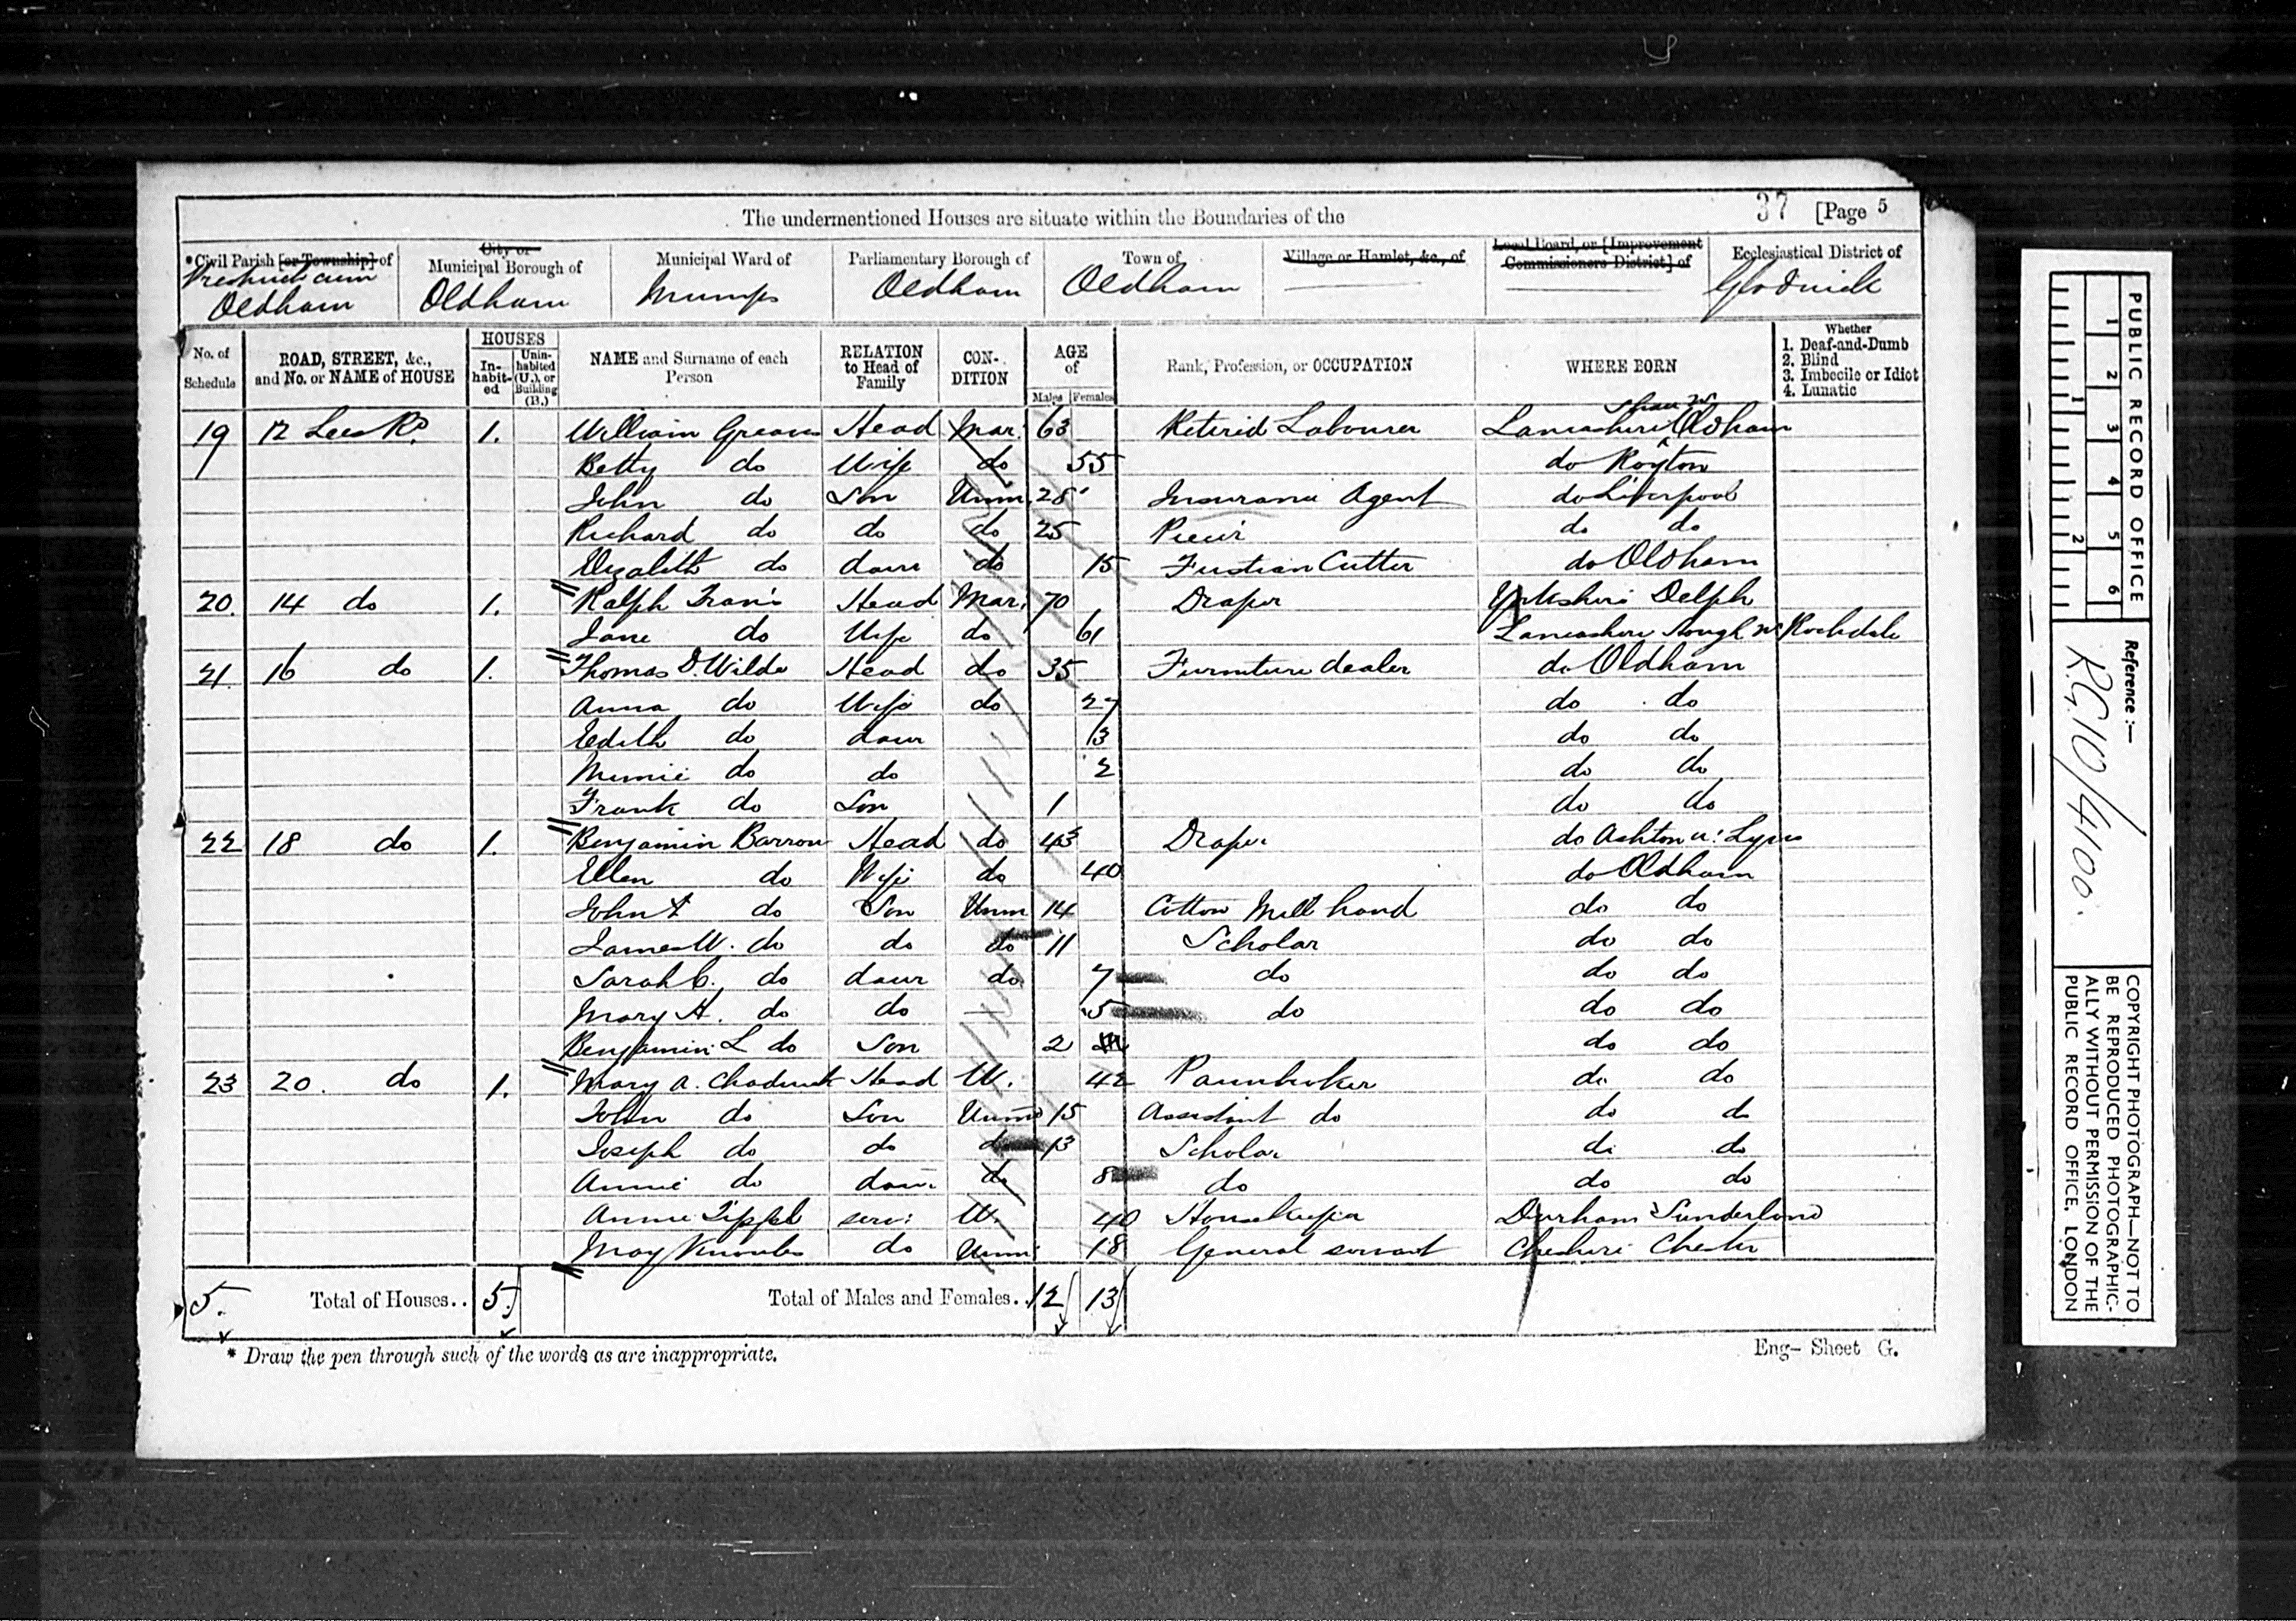 The undermentioned Houses are situate within the Boundaries of the 37 [Page 5
*Civil Parish [or Township] of
City or Municipal Borough of
Municipal Ward of
Parliamentary Borough of
Town of
Village or Hamlet, &c., of
Local Board, or [Improvement Commissioners District] of
Ecclesiastical District of
Prestwich cum Oldham
Oldham
Mumps
Oldham
Oldham
Glodwick
No. of Schedule
ROAD, STREET, &c., and No. or NAME of HOUSE
HOUSES
In-habit-ed
Unin-habited (U.), or Building (B.)
NAME and Surname of each Person
RELATION to Head of Family
CON-DITION
AGE of
Males Females
Rank, Profession, or OCCUPATION
WHERE BORN
Whether
1. Deaf-and-Dumb
2. Blind
3. Imbecile or Idiot
4. Lunatic
19 12 Lees Rd 1. William Greaves Head Mar. 63 Retired Labourer Lancashire Shaw nr Oldham
Betty do Wife do 55 do Royton
John do Son Unm. 28 Insurance Agent do Liverpool
Richard do do do 25 Piecer do do
Elizabeth do daur do 15 Fustian Cutter do Oldham
20. 14 do 1. Ralph Travis Head Mar. 70 Draper Yorkshire Delph
Jane do Wife do 61 Lancashire Hough nr Rochdale
21. 16 do 1. Thomas D. Wilde Head do 35 Furniture dealer do Oldham
Anna do Wife do 27 do do
Edith do daur 3 do do
Minnie do do 2 do do
Frank do Son 1 do do
22 18 do 1. Benjamin Barrow Head do 43 Draper do Ashton u. Lyne
Ellen do Wife do 40 do Oldham
John A do Son Unm 14 Cotton Mill hand do do
James W. do do do 11 Scholar do do
Sarah C. do daur do 7 do do do
Mary A. do do — 5 do do do
Benjamin L do Son 2 do do
23 20. do 1. Mary A. Chadwick Head W. 42 Pawnbroker do do
John do Son Unmd 15 Assistant do do do
Joseph do do do 13 Scholar do do
Annie do daur. do 8 do do do
Annie serv: W. 40 Housekeeper Durham Sunderland
May Knowles do Unm: 18 General servant Cheshire Chester
5. Total of Houses.. 5. Total of Males and Females.. 12 13
* Draw the pen through such of the words as are inappropriate.
Eng- Sheet G.
PUBLIC RECORD OFFICE
1 2 3 4 5 6
1 2
Reference :—
R.G.10/4100.
COPYRIGHT PHOTOGRAPH—NOT TO
BE REPRODUCED PHOTOGRAPHIC-
ALLY WITHOUT PERMISSION OF THE
PUBLIC RECORD OFFICE, LONDON